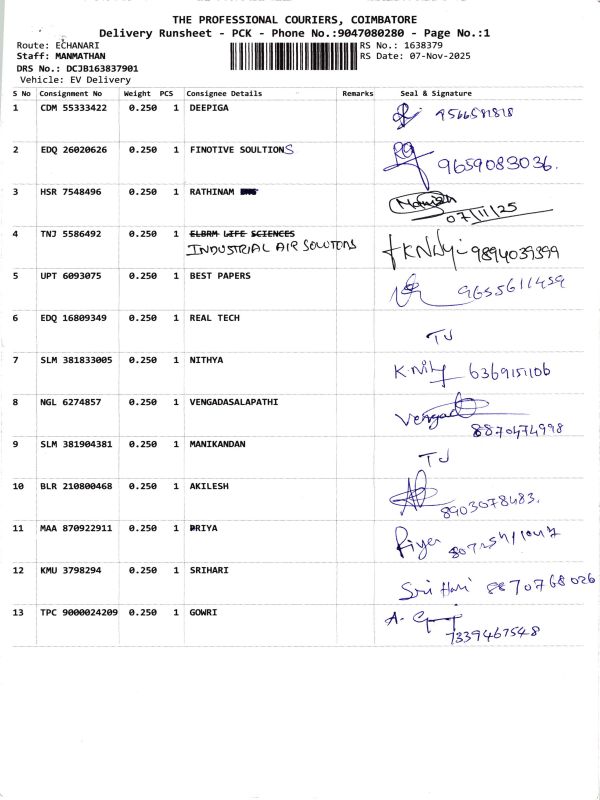 THE PROFESSIONAL COURIERS, COIMBATORE
Delivery Runsheet - PCK - Phone No.:9047080280 - Page No.:1
Route: ECHANARI
Staff: MANMATHAN
DRS No.: DCJB163837901
Vehicle: EV Delivery
RS No.: 1638379
RS Date: 07-Nov-2025
S No Consignment No Weight PCS Consignee Details Remarks Seal & Signature
1 CDM 55333422 0.250 1 DEEPIGA
2 EDQ 26020626 0.250 1 FINOTIVE SOULTIONS 9659083036.
3 HSR 7548496 0.250 1 RATHINAM
07/11/25
4 TNJ 5586492 0.250 1 ELBRM LIFE SCIENCES
INDUSTRIAL AIR SOLUTIONS 9894039399
5 UPT 6093075 0.250 1 BEST PAPERS 9655611459
6 EDQ 16809349 0.250 1 REAL TECH
TJ
7 SLM 381833005 0.250 1 NITHYA 6369151106
8 NGL 6274857 0.250 1 VENGADASALAPATHI
8870474998
9 SLM 381904381 0.250 1 MANIKANDAN
TJ
10 BLR 210800468 0.250 1 AKILESH
8903078483.
11 MAA 870922911 0.250 1 PRIYA
12 KMU 3798294 0.250 1 SRIHARI
Sri Hari 8870768026
13 TPC 9000024209 0.250 1 GOWRI
7339467548